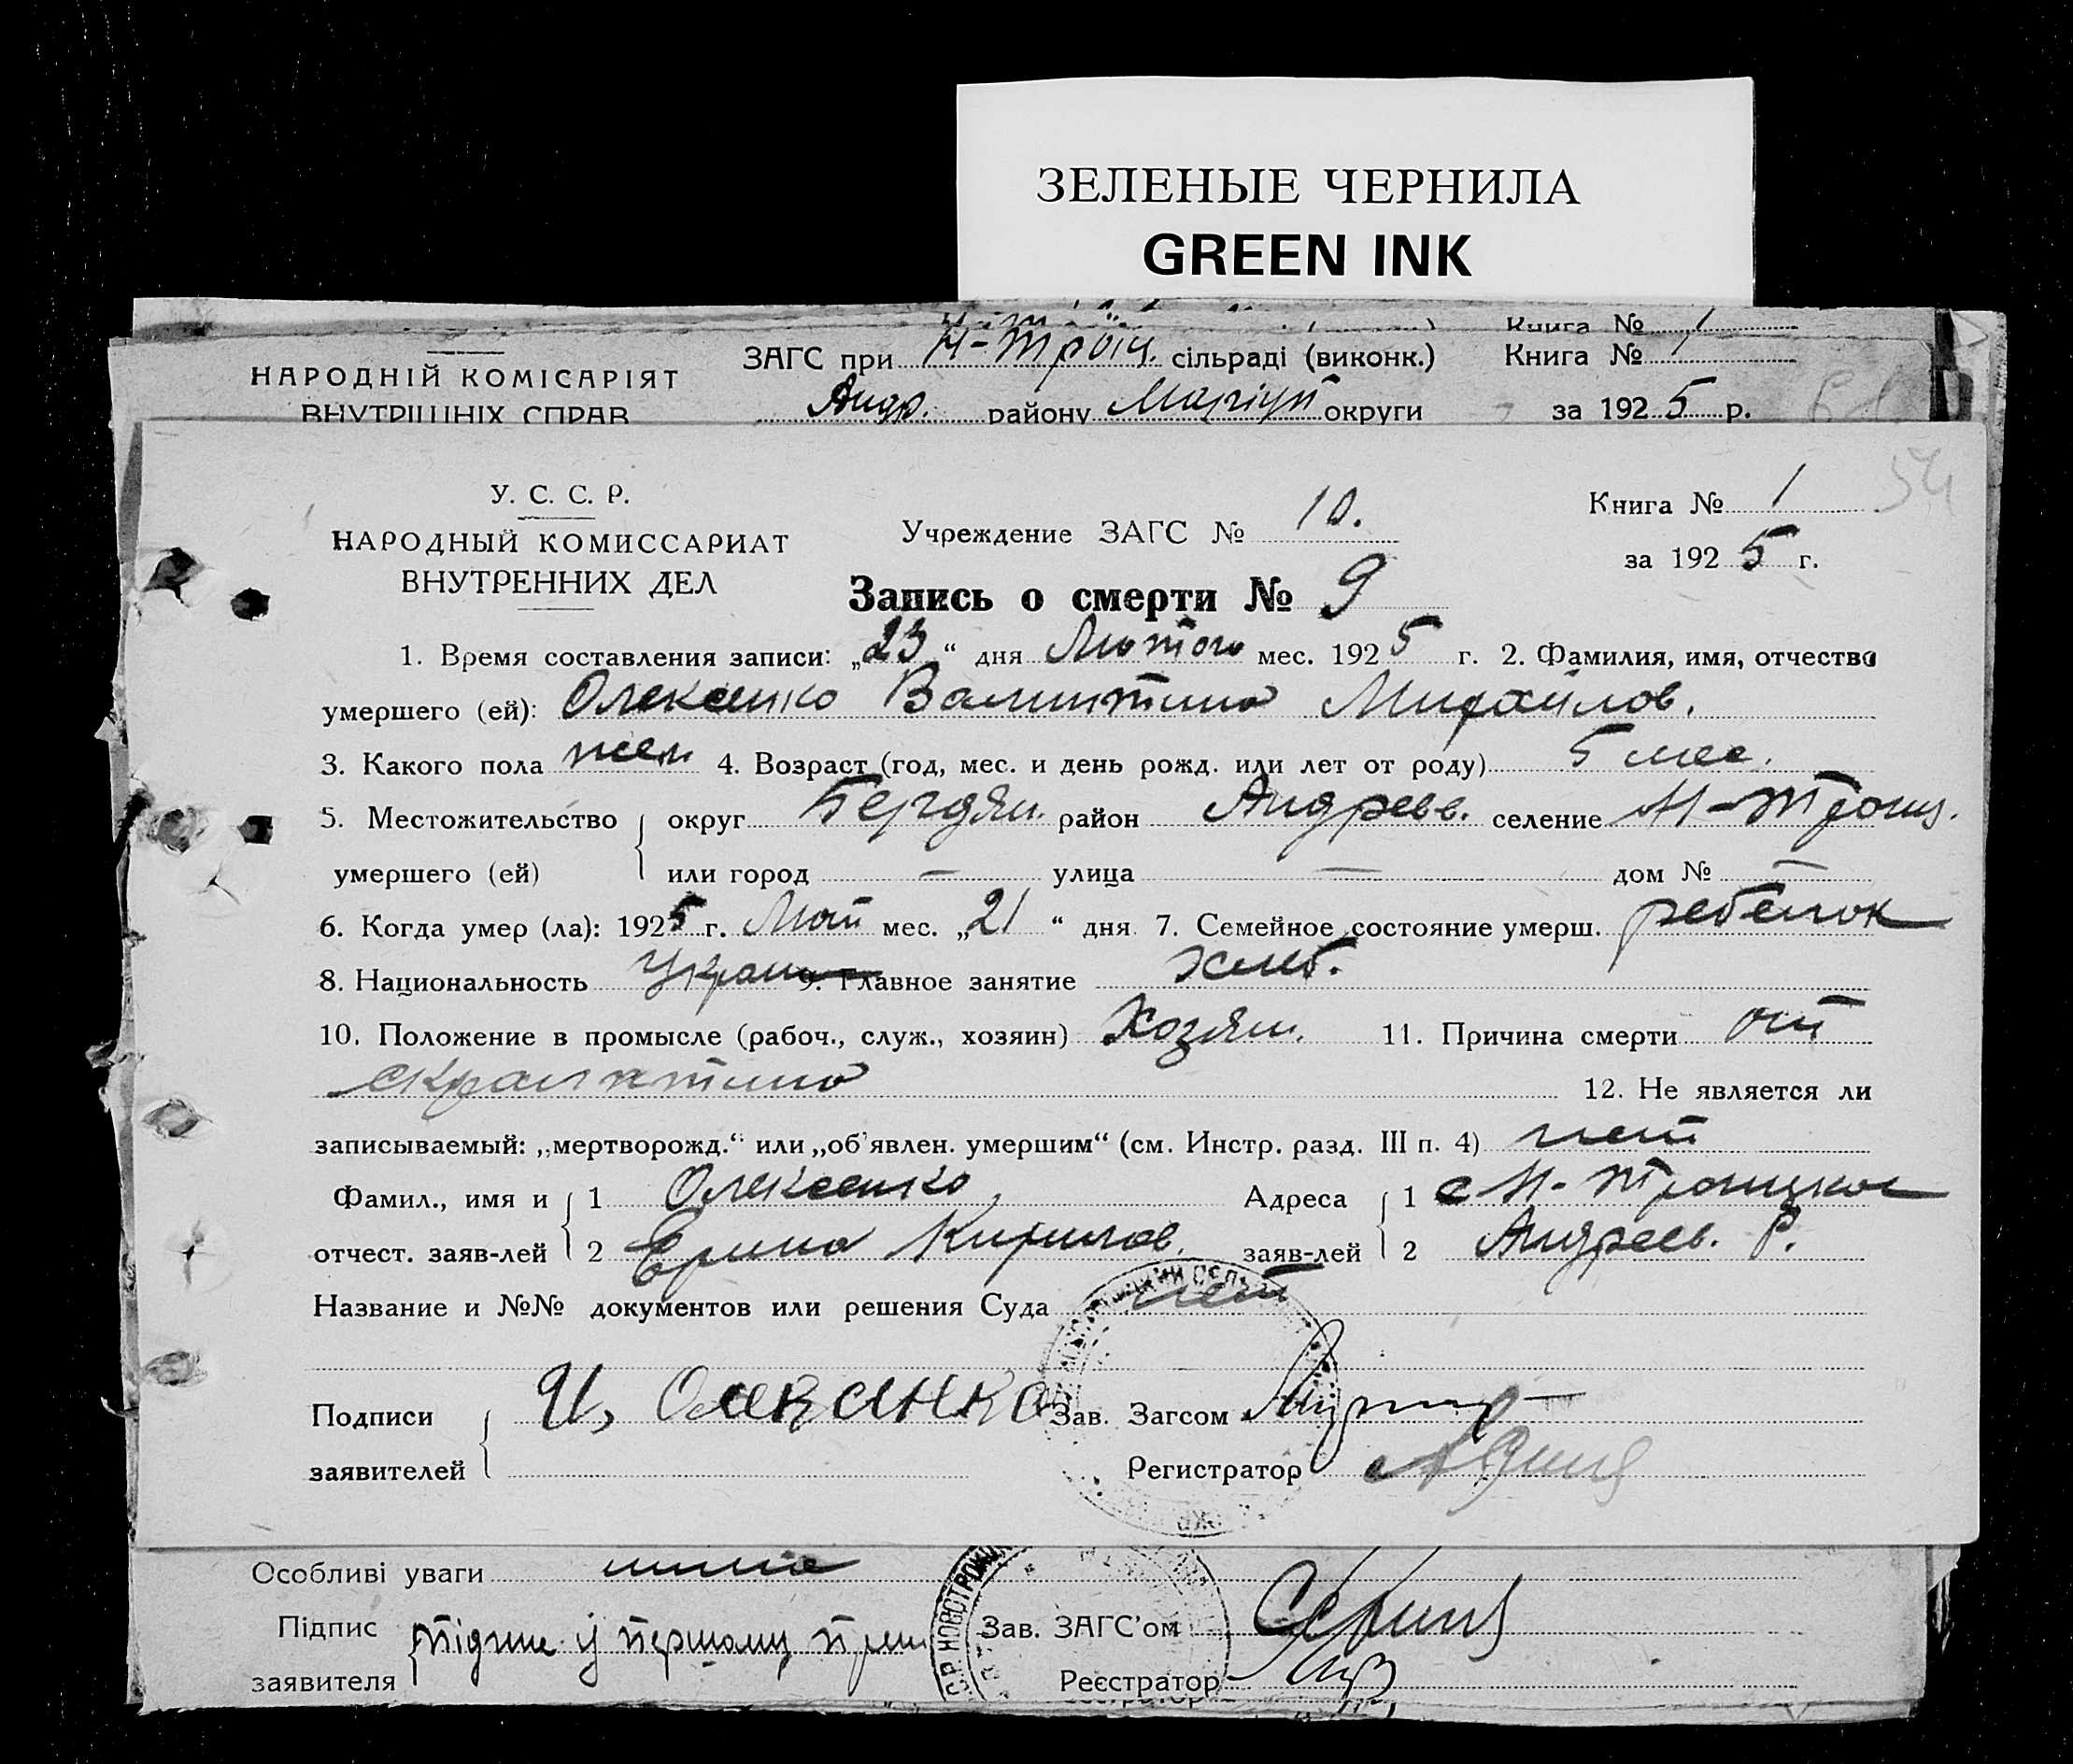 ЗЕЛЕНЫЕ ЧЕРНИЛА
GREEN INK
Книга № 1
ЗАГС при Н-Троіц. сільраді (виконк.) Книга № 1
НАРОДНІЙ КОМІСАРІЯТ
ВНУТРІШНІХ СПРАВ
Андр. району Маріуп округи за 1925 р.
У. С. С. Р.
НАРОДНЫЙ КОМИССАРИАТ
ВНУТРЕННИХ ДЕЛ
Учреждение ЗАГС № 10.
Книга № 1 54
за 1925 г.
Запись о смерти № 9
1. Время составления записи: „23“ дня Лютого мес. 1925 г. 2. Фамилия, имя, отчество
умершего (ей): Олексенко Валинтина Михайлов.
3. Какого пола жен 4. Возраст (год, мес. и день рожд. или лет от роду) 5 мес.
5. Местожительство округ Бердян. район Андреев. селение Н-Троиц.
умершего (ей) или город — улица — дом № —
6. Когда умер (ла): 1925 г. Май мес. „21“ дня 7. Семейное состояние умерш. ребенок
8. Национальность Украин 9. Главное занятие хлеб.
10. Положение в промысле (рабоч., служ., хозяин) Хозяин. 11. Причина смерти от
скарлатина 12. Не является ли
записываемый: „мертворожд.“ или „об'явлен. умершим“ (см. Инстр. разд. III п. 4) нет
Фамил., имя и 1 Олексенко, Адреса 1 с Н-Троицкое
отчест. заяв-лей 2 Ерина Кирилов. заяв-лей 2 Андреев. Р.
Название и №№ документов или решения Суда нет
Подписи И, Олексанко Зав. Загсом
заявителей Регистратор
Особливі уваги нима
Підпис підпис у першому прим Зав. ЗАГС'ом
заявителя Реєстратор